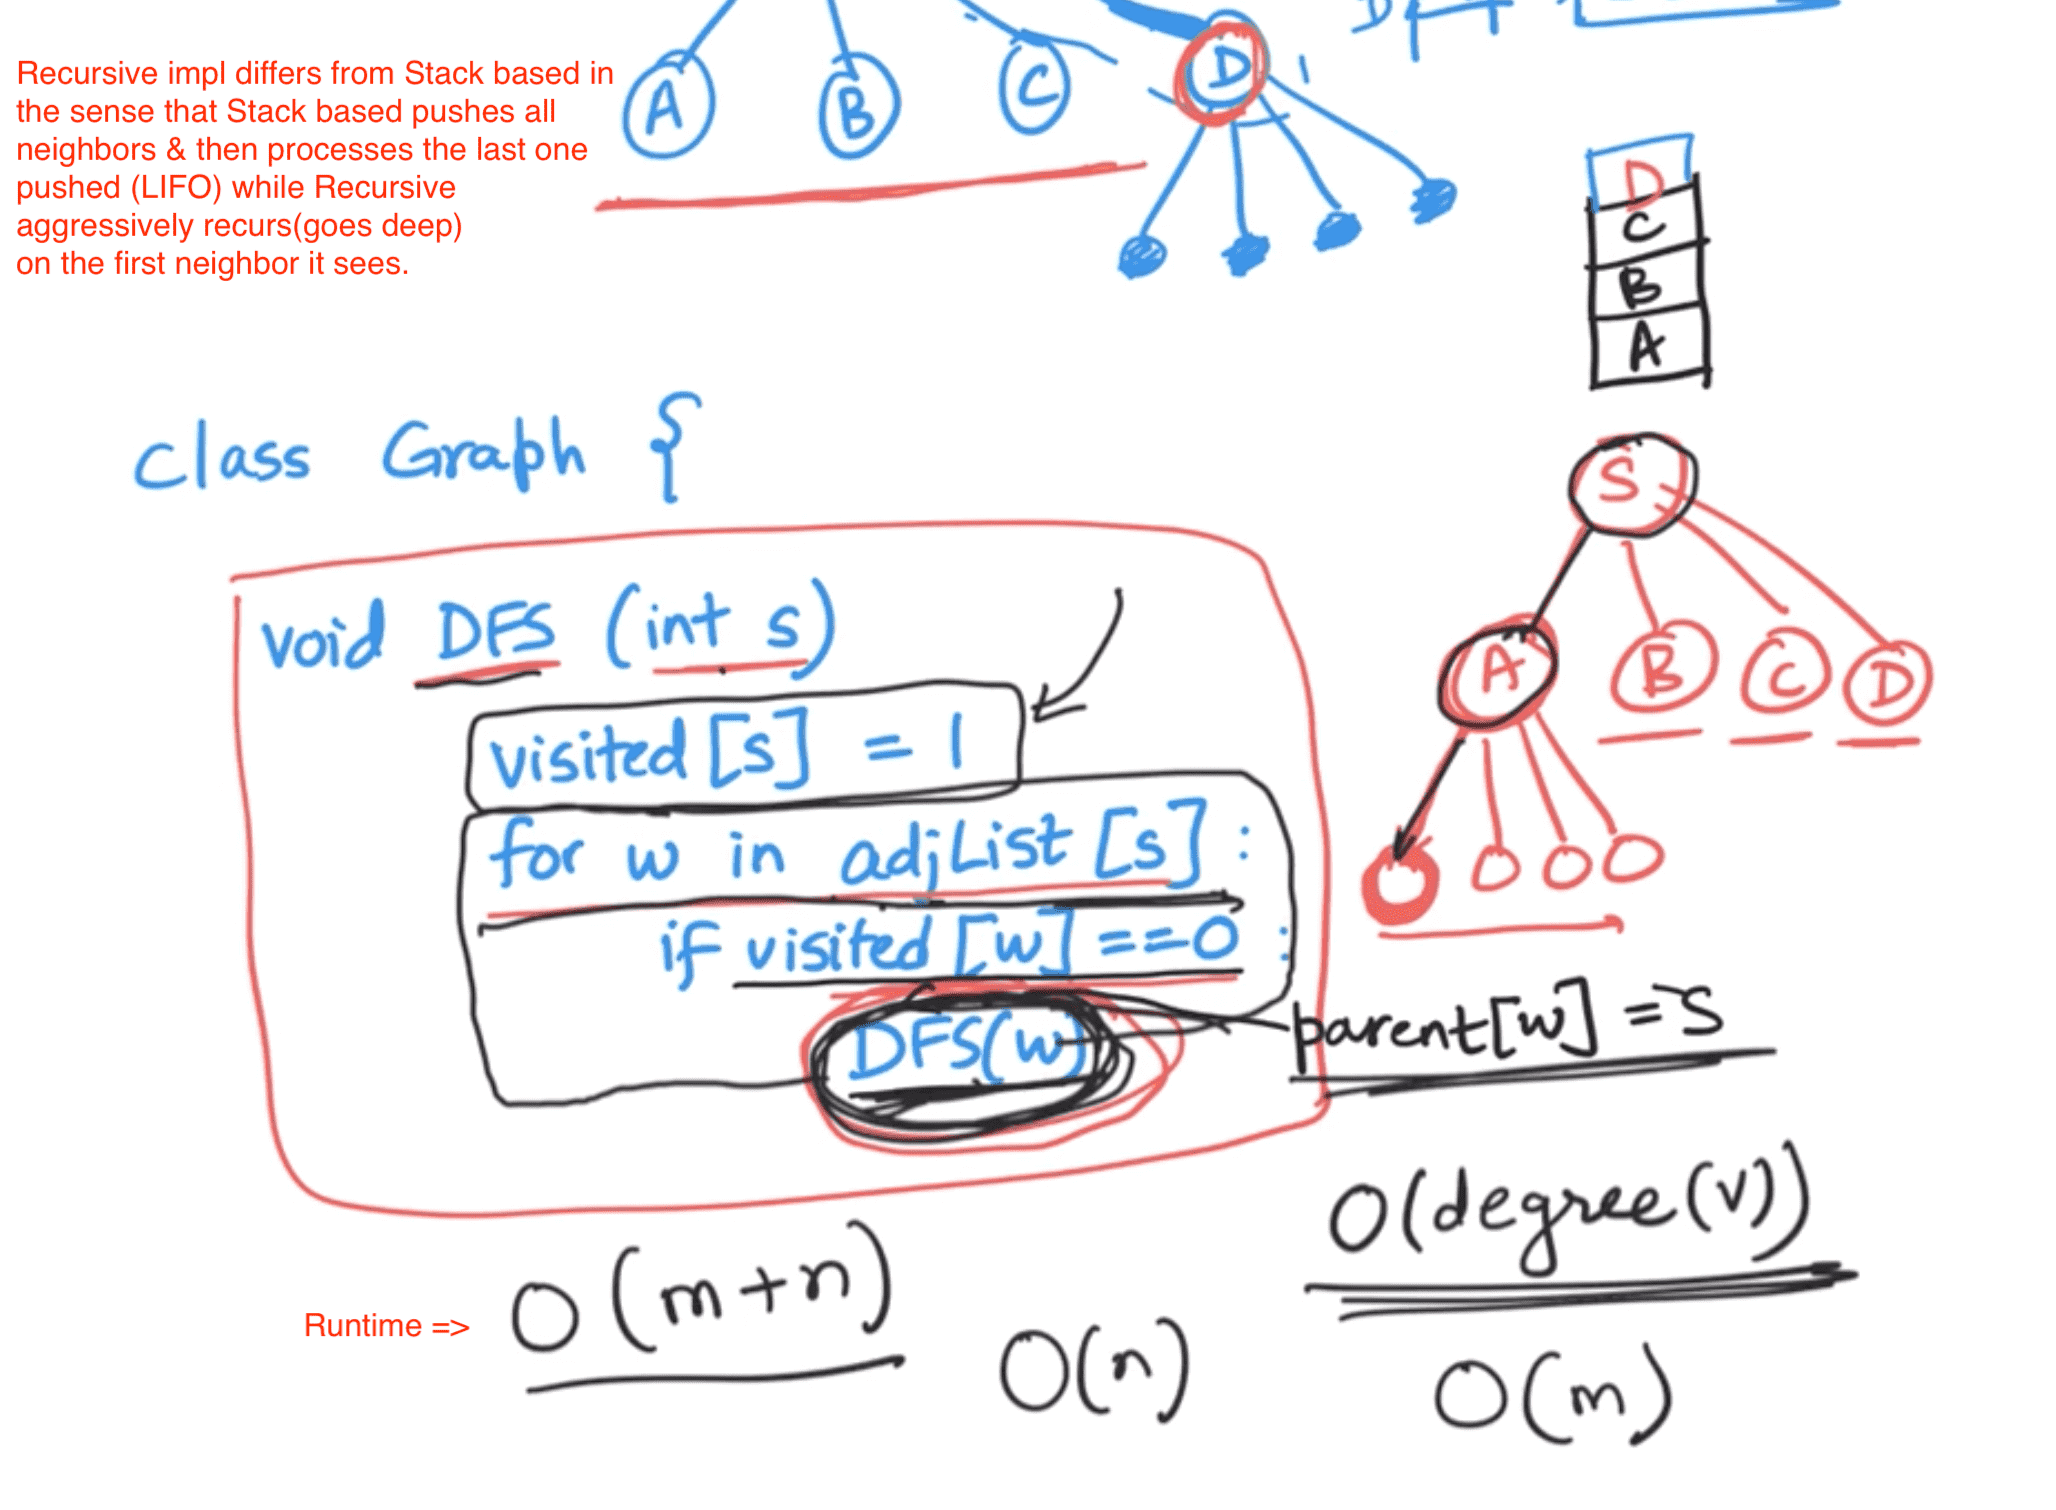 Recursive impl differs from Stack based in
the sense that Stack based pushes all
neighbors & then processes the last one
pushed (LIFO) while Recursive
aggressively recurs(goes deep)
on the first neighbor it sees.
A B C D
D
C
B
A
class Graph {
S
void DFS (int s)
A B C D
visited [s] = 1
for w in adjList [s] :
if visited [w] ==0 :
DFS(w)
parent[w] = S
O(degree(v))
Runtime => O(m+n)
O(n)
O(m)